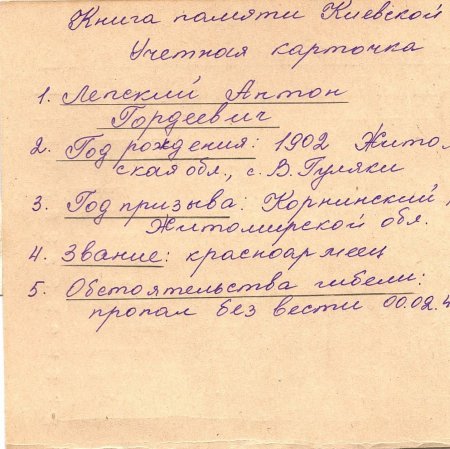 Книга памяти Киевской
Учетная карточка
1. Лепский Антон
Гордеевич
2. Год рождения: 1902 Жито
ская обл., с. В. Гуляки
3. Год призыва: Корнинский
Житомирской обл.
4. Звание: красноармеец
5. Обстоятельства гибели:
пропал без вести 00.02.4